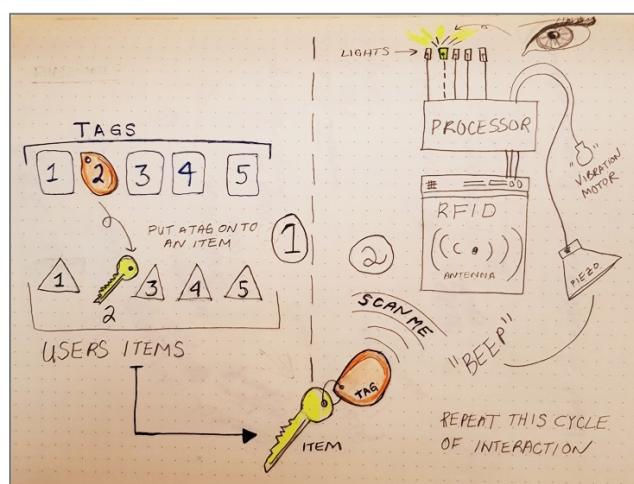 TAGS
1 2 3 4 5
PUT A TAG ONTO
AN ITEM
1
1 2 3 4 5
USERS ITEMS
LIGHTS
PROCESSOR
RFID
ANTENNA
"VIBRATION
MOTOR"
PIEZO
2
SCAN ME
"BEEP"
TAG
ITEM
REPEAT THIS CYCLE
OF INTERACTION